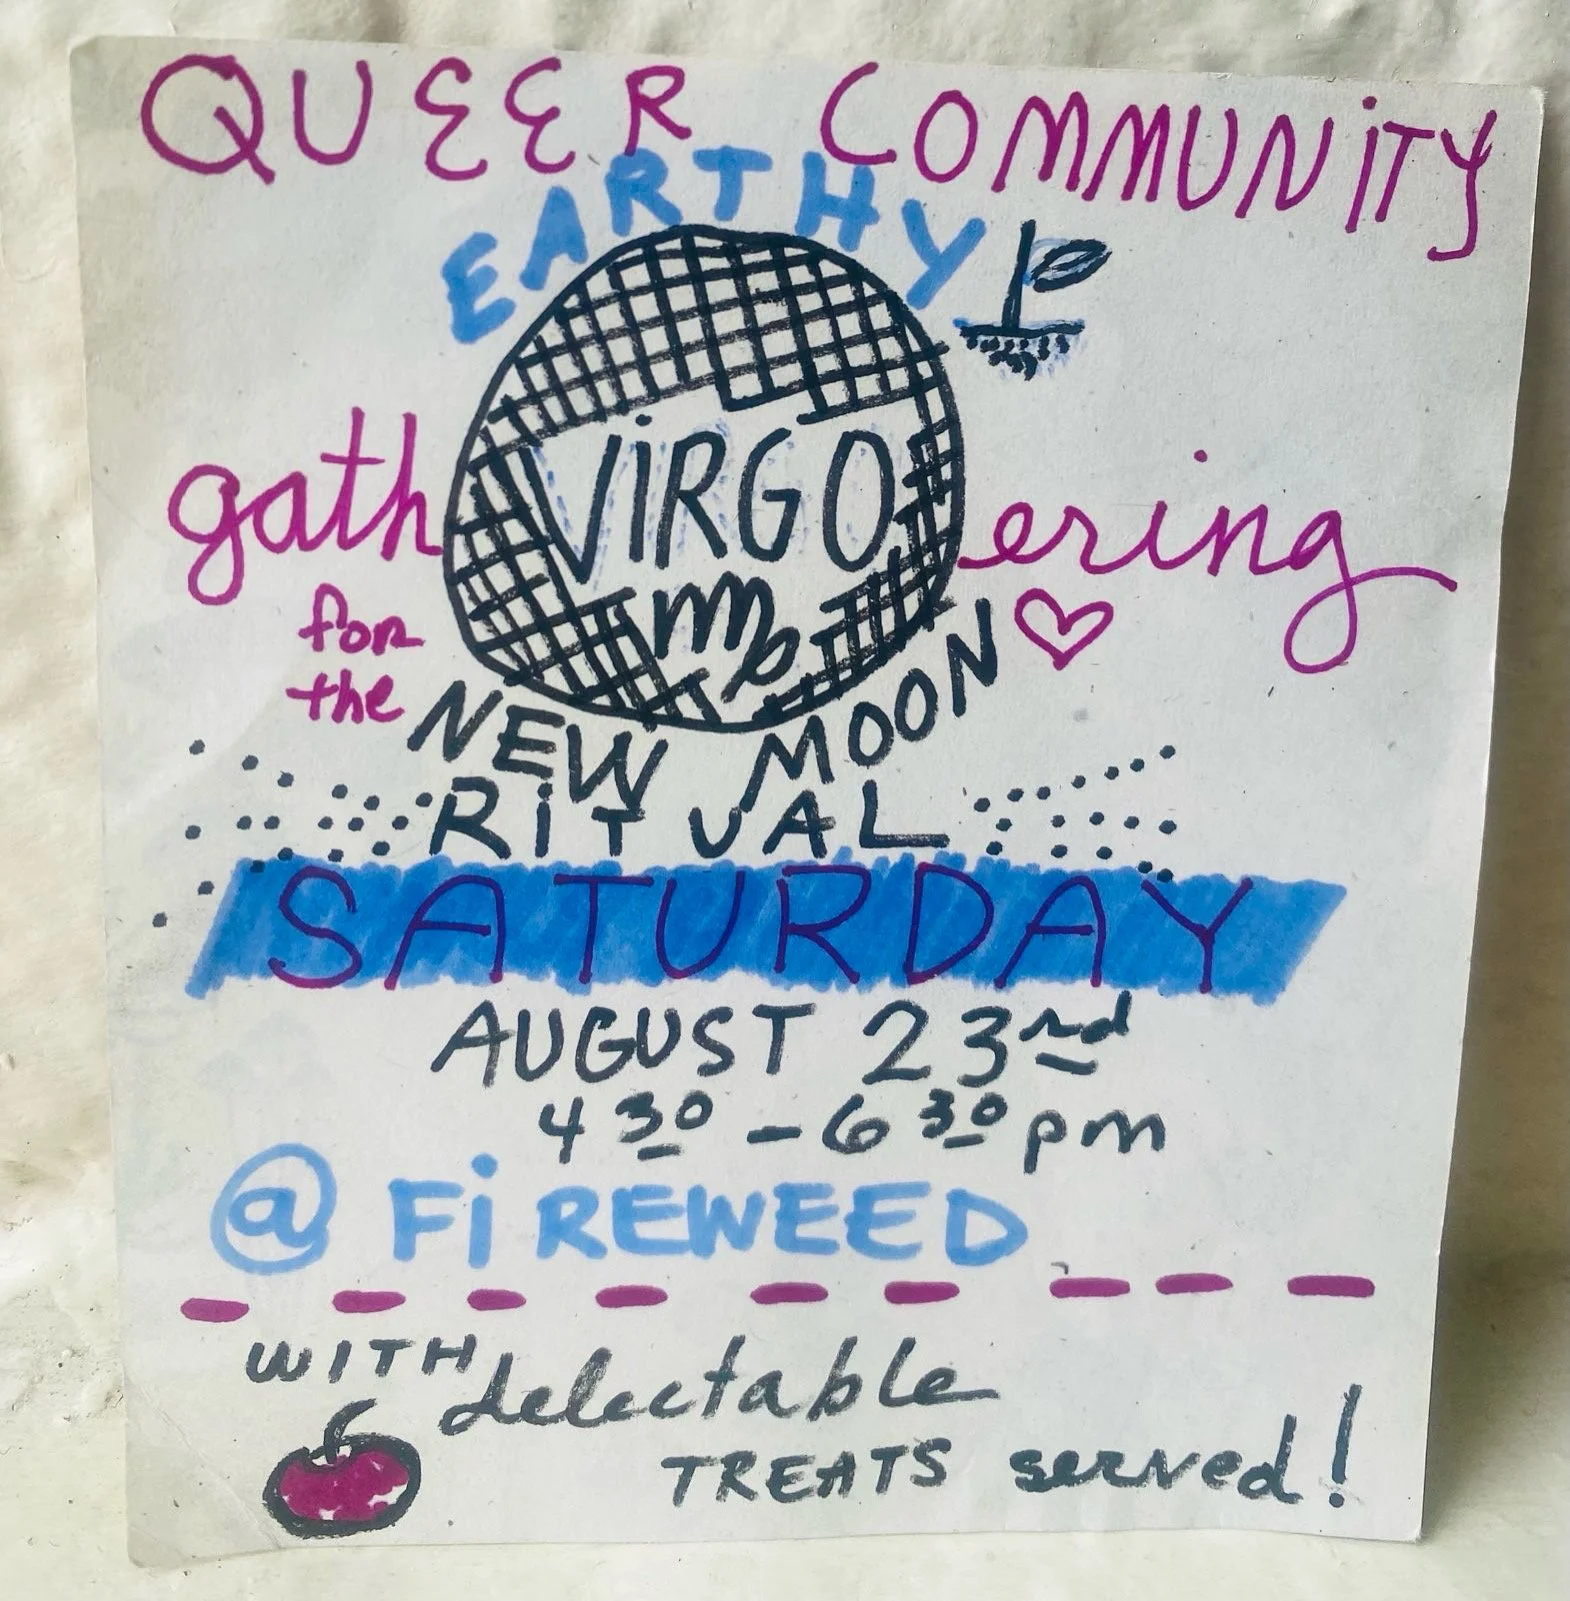 QUEER COMMUNITY
EARTHY
VIRGO
♍
gathering
for
the
NEW MOON
RITUAL
SATURDAY
AUGUST 23rd
4 30 - 6 30 pm
@ FIREWEED
WITH delectable
TREATS served!